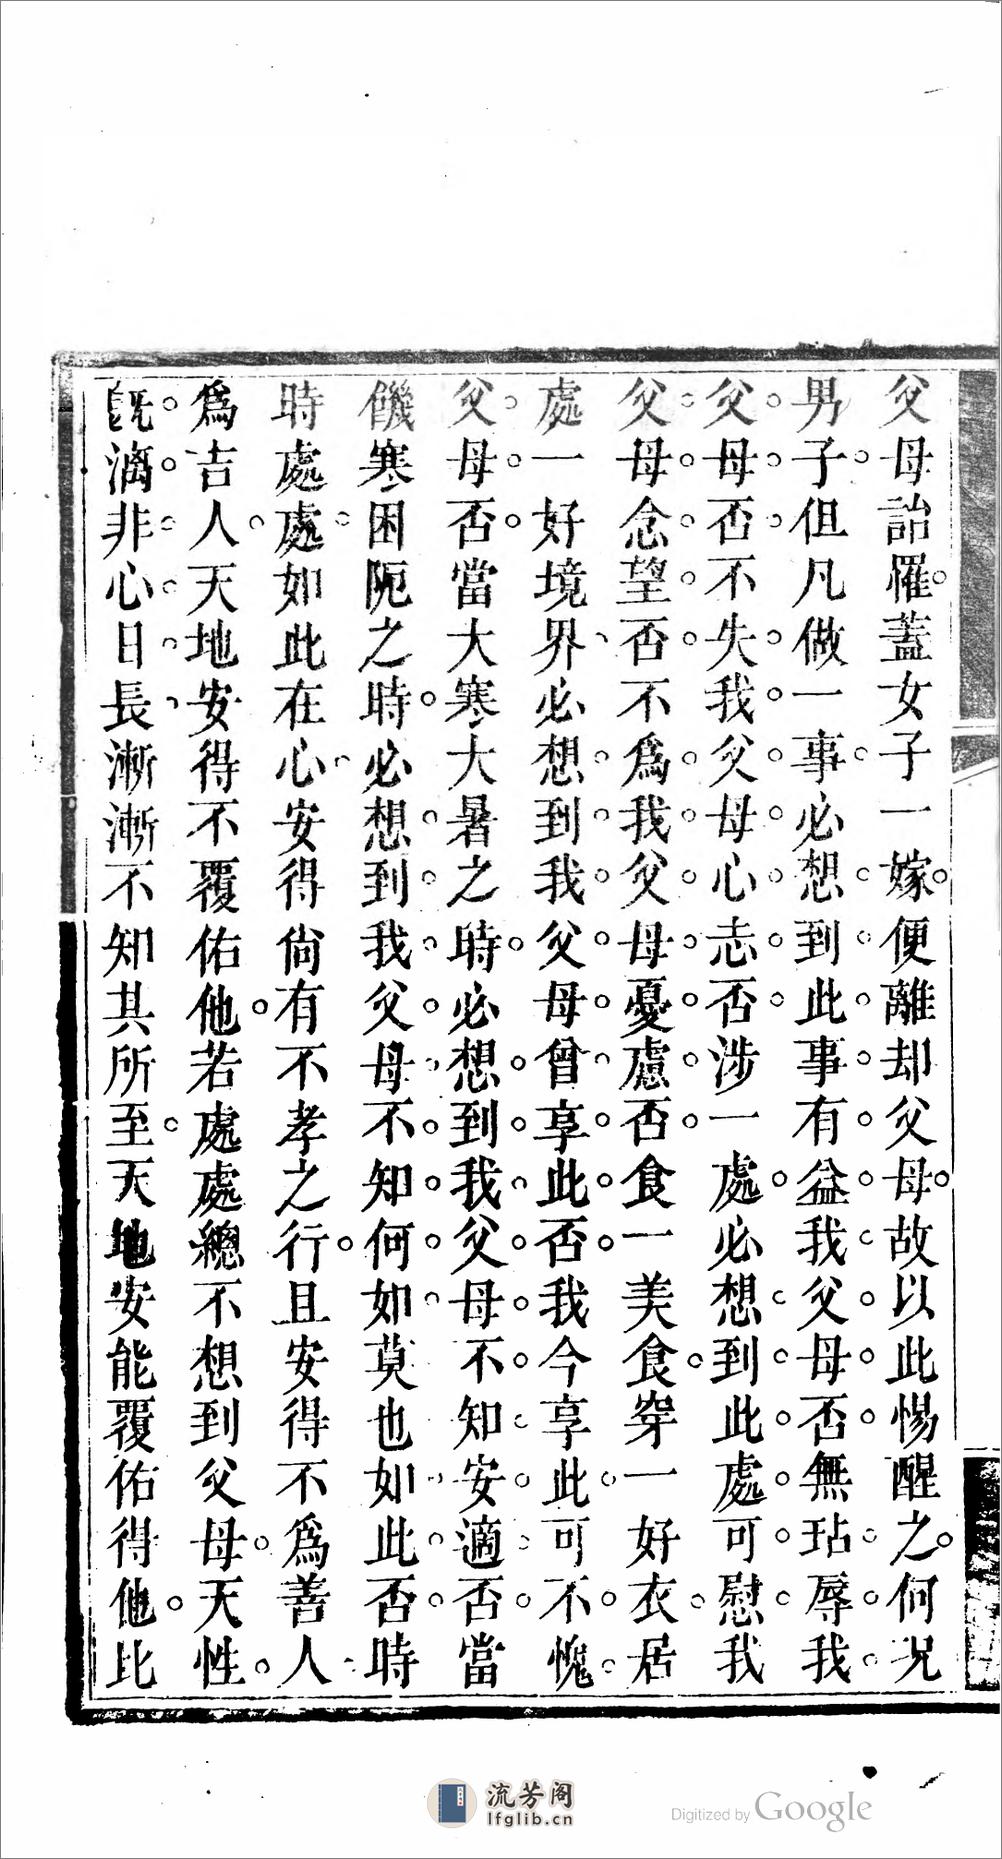 父母詒罹蓋女子一嫁便離却父母故以此惕醒之何况
男子但凡做一事必想到此事有益我父母否無玷辱我
父母否不失我父母心志否涉一處必想到此處可慰我
父母念望否不爲我父母憂慮否食一美食穿一好衣居
處一好境界必想到我父母曾享此否我今享此可不愧
父母否當大寒大暑之時必想到我父母不知安適否當
饑寒困阨之時必想到我父母不知何如莫也如此否時
時處處如此在心安得尙有不孝之行且安得不爲善人
爲吉人天地安得不覆佑他若處處總不想到父母天性
旣漓非心日長漸漸不知其所至天地安能覆佑得他比
流芳阁
lfglib.cn
Digitized by Google